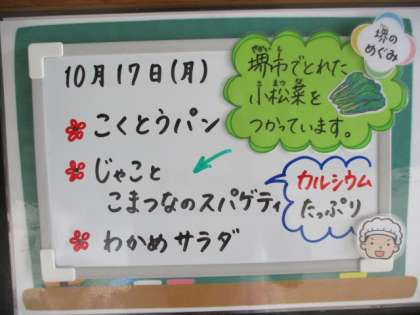 10月17日(月)
堺のめぐみ
堺市でとれた
小松菜を
つかっています。
こくとうパン
じゃこと
こまつなのスパゲティ
カルシウム
たっぷり
わかめサラダ